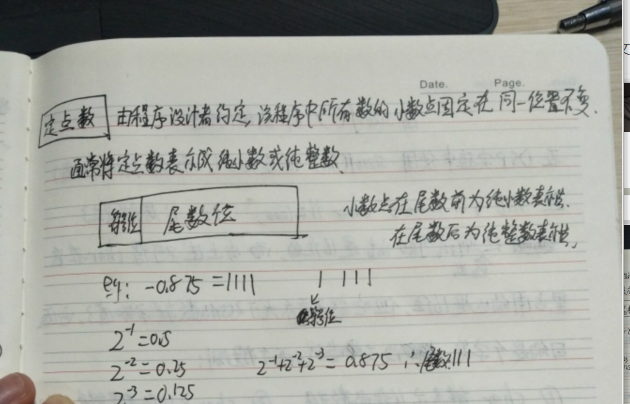 Date. Page.
定点数 由程序设计者约定,该程序中所有数的小数点固定在同一位置不变.
通常将定点数表示成纯小数或纯整数.
符号位 尾数位
小数点在尾数前为纯小数表示.
在尾数后为纯整数表示.
eg: -0.875 = 1111 1 111
符号位
2^-1=0.5
2^-2=0.25 2^-1+2^-2+2^-3=0.875 ∴尾数111
2^-3=0.125